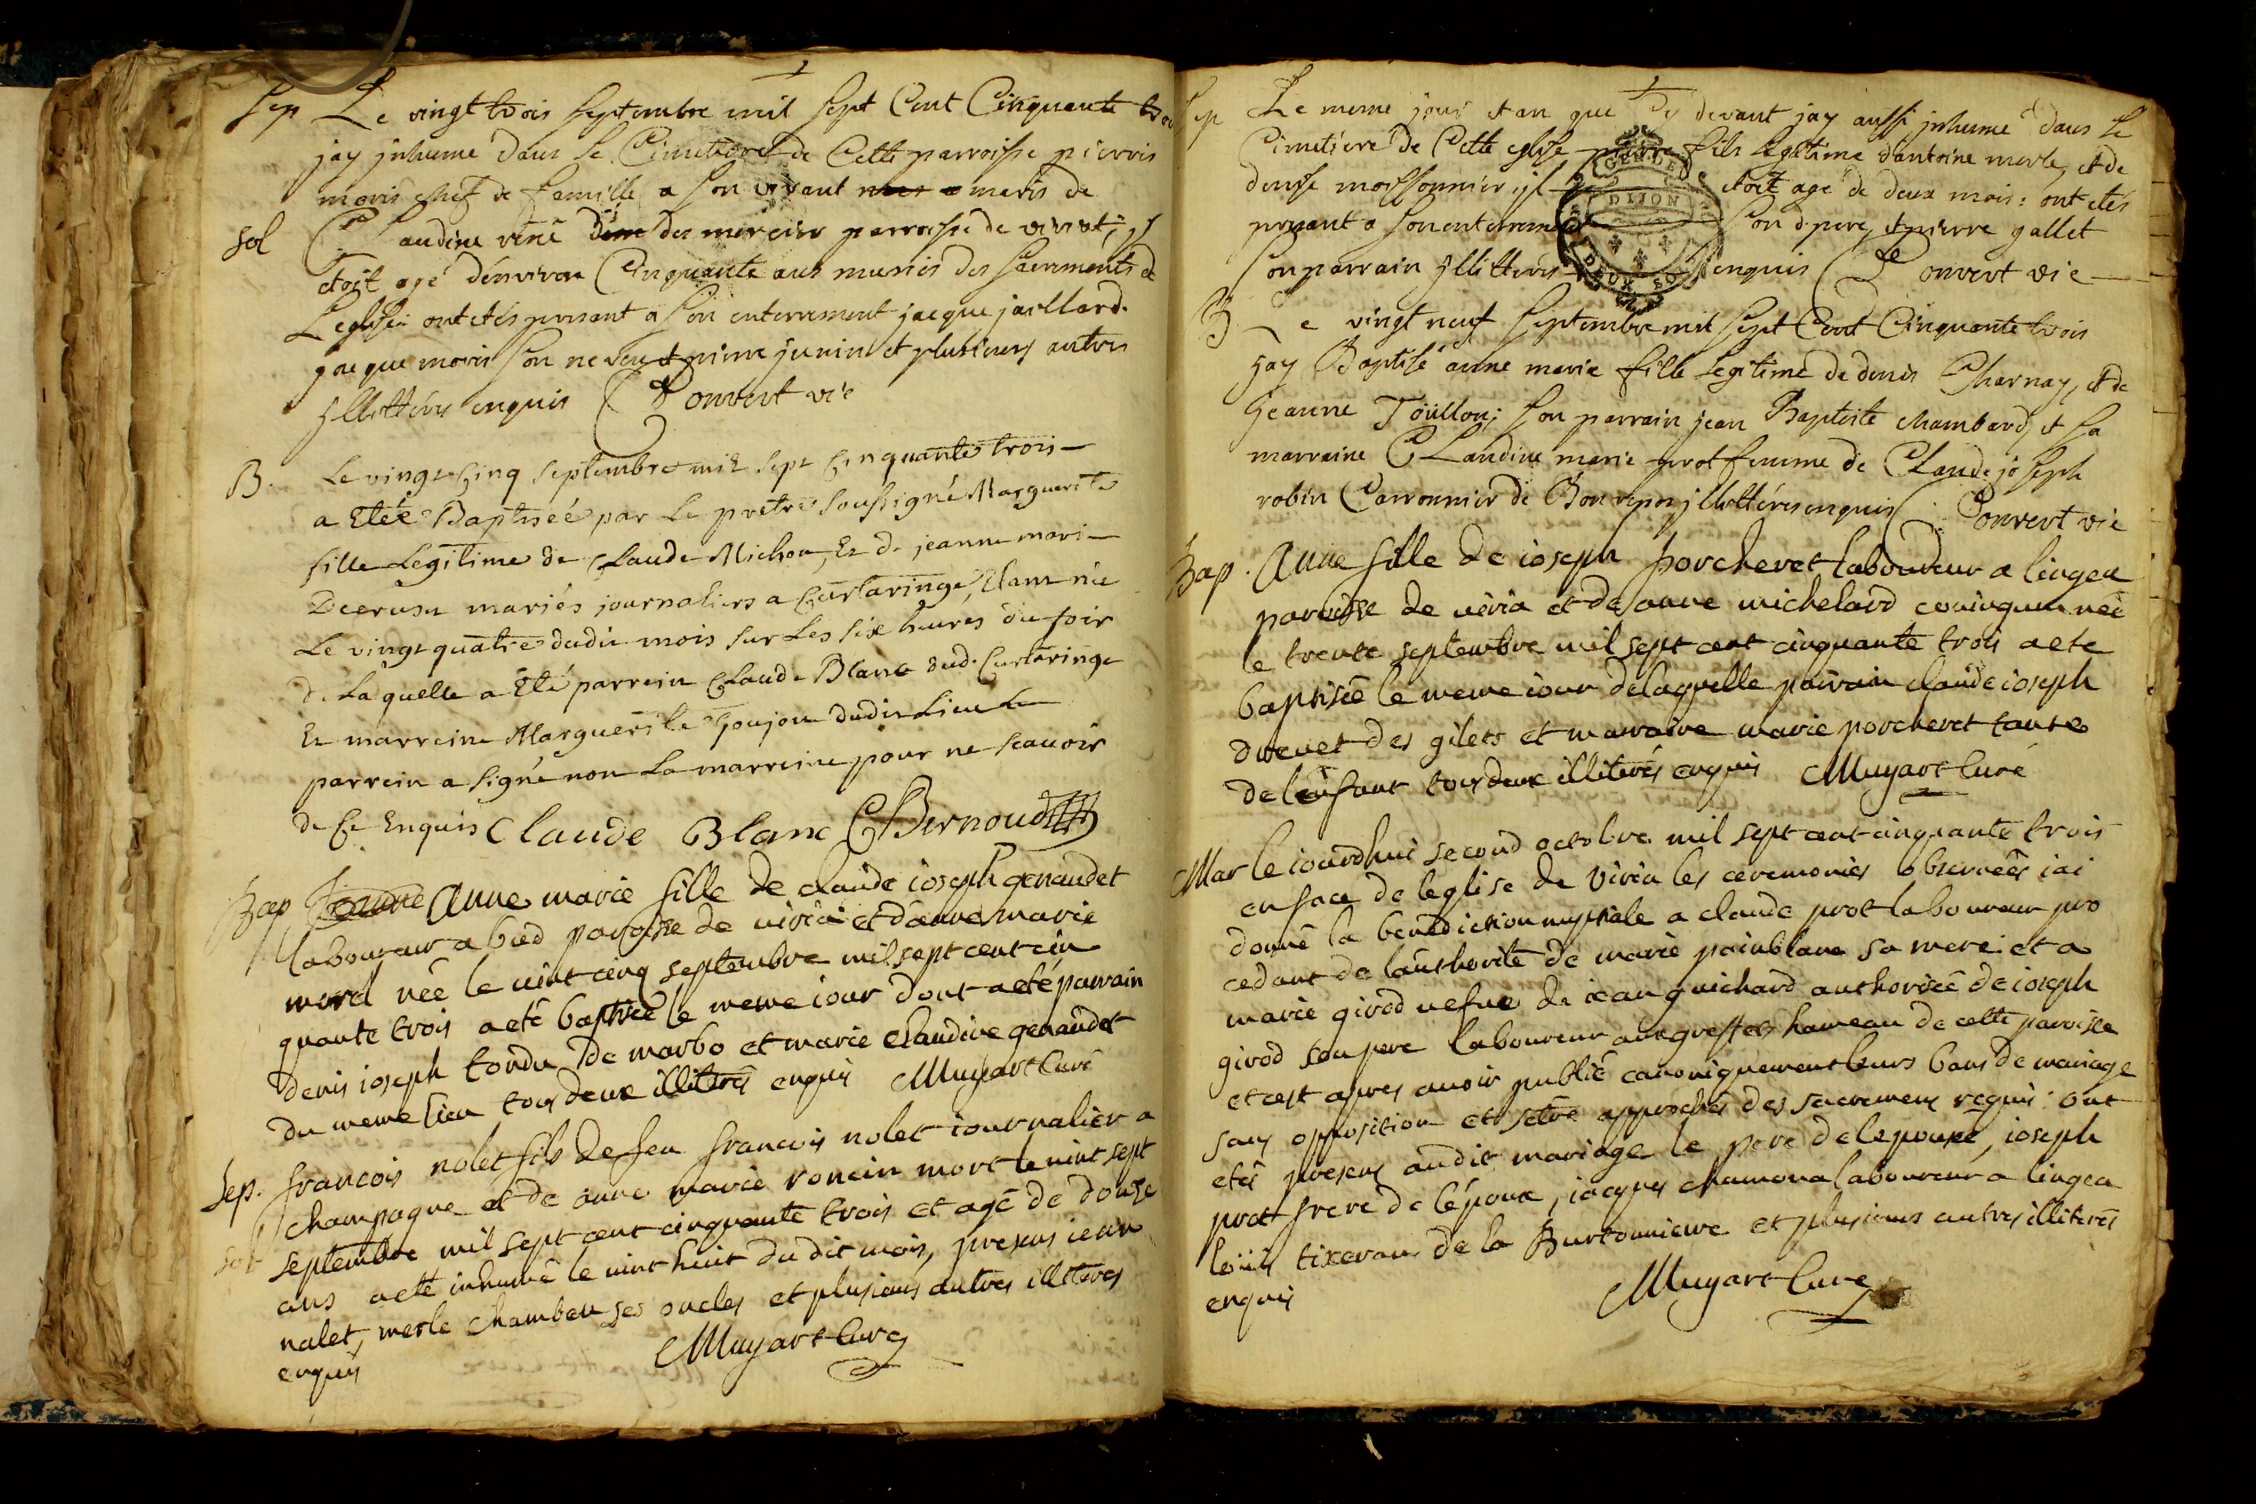 Sep Le vingt trois septembre mil sept Cent Cinquante trois
jay jnhume dans le Cimetiere de Cette parroisse pierrois
moris chef de famille a son vivant maris de
sol Claudine réné des mercier parroisse de viriat; jl
étoit agé dénviron Cinquante ans munis des sacrements de
L'eglise; ont etés present a son enterrement jacque jaillard
jacque moris son neveu et pierre junin et plusieurs autres
jlletterés enquis Convert vic
B. Le vingt Cinq septembre mil sept Cinquante trois
a Etée Baptisée par Le pretre soussigné Marguerite
fille Legitime de Claude Michon, Et de jeanne marie
Decrusu mariés journaliers a Curtaringe, Etant née
Le vingt quatre dudit mois sur Les six heures du soir
de Laquelle a Eté parrein Claude Blanc dud. Curtaringe
Et marreine Marguerite Goujon dudit Lieu Le
parrein a signé non La marreine pour ne scavoir
de Ce Enquis Claude Blanc CBernoud
Bap Jeanne Anne marie fille de claude ioseph genaudet
laboureur a bied paroisse de viria et d'anne marie
morel née le vint cinq septembre mil sept cent cin
quante trois a eté baptisée le meme iour dont a eté parrain
denis ioseph tondu de marbo et marie claudine genaudet
du meme lieu tous deux illiterés enquis Muyart Curé
Sep. francois nolet fils de feu francois nolet iournalier a
champagne et de anne marie roncin mort le vint sept
sol septembre mil sept cent cinquante trois et agé de douze
ans a eté inhumé le vint huit du dit mois, presens iean
nalet, merle chambeu ses oncles et plusieurs autres illiteres
enquis Muyart Curé
Sep Le meme jour et an que Cy devant jay aussi jnhume dans le
Cimetiere de Cette eglise pierre fils legitime d'antoine merle, et de
denise moissonnier, jl étoit agé de deux mois: ont etés
present a son enterrement son d. pere, et pierre gallet
son parrain jlletterés enquis Convert vic
GEN. DE
DIJON
DEUX SO
B. Le vingt neuf septembre mil sept Cent Cinquante trois
jay Baptisé anne marie fille legitime de denis Charnay, et de
jeanne Toüillon; son parrain jean Baptiste Chambard, et sa
marraine Claudine marie prot femme de Claude joseph
robin Carronnier de Bon repos jlletterés enquis Convert vic
Bap. Anne fille de ioseph porcheret laboureur a lingea
paroisse de viria et de anne michelard coniugum née
le trente septembre mil sept cent cinquante trois a ete
baptisée le meme iour de laquelle parrain claude ioseph
drevet des gilets et marraine marie porcheret tante
de l'enfant tous deux illiterés enquis Muyart Curé
Mar le iourdhui second octobre mil sept cent cinquante trois
en face de leglise de viria les ceremonies observées iai
donné la benediction nuptiale a claude prot laboureur pro
cedant de l'authorité de marie painblanc sa mere et a
marie girod vefue de iean guichard authorisée de ioseph
girod son pere laboureur aux greffets hameau de cette paroisse
et cest apres auoir publié canoniquement leurs bans de mariage
sans opposition et setre approchés des sacremens requis: ont
etés presens audit mariage le pere de lepouse, ioseph
prot frere de l'époux, iacques chamona laboureur a lingea
tixeran de la Burtonniere et plusieurs autres illiterés
enquis Muyart Curé